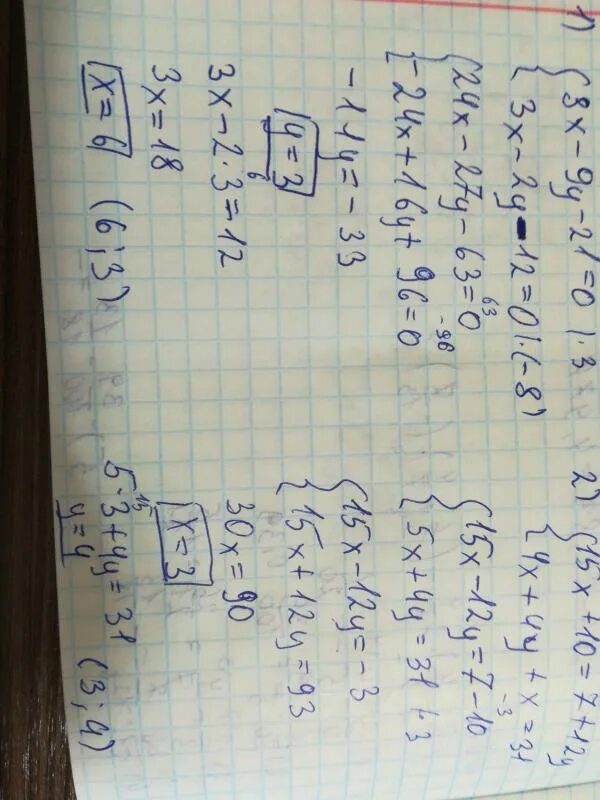 1) { 8x - 9y - 21 = 0 | · 3
{ 3x - 2y - 12 = 0 | · (-8)
{ 24x - 27y - 63 = 0 63
{ -24x + 16y + 96 = 0 -96
-11y = -33
y = 3
3x - 2 · 3 = 12 6
3x = 18
x = 6 (6; 3)
2) { 15x + 10 = 7 + 12y
{ 4x + 4y + x = 31
{ 15x - 12y = 7 - 10 -3
{ 5x + 4y = 31 · 3
{ 15x - 12y = -3
{ 15x + 12y = 93
30x = 90
x = 3
5 · 3 + 4y = 31 15
y = 4 (3; 4)